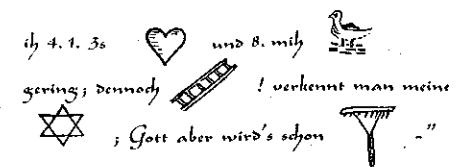 ih 4. 1. 3s und 8. mih
gering; dennoch ! verkennt man meine
; Gott aber wird's schon -"